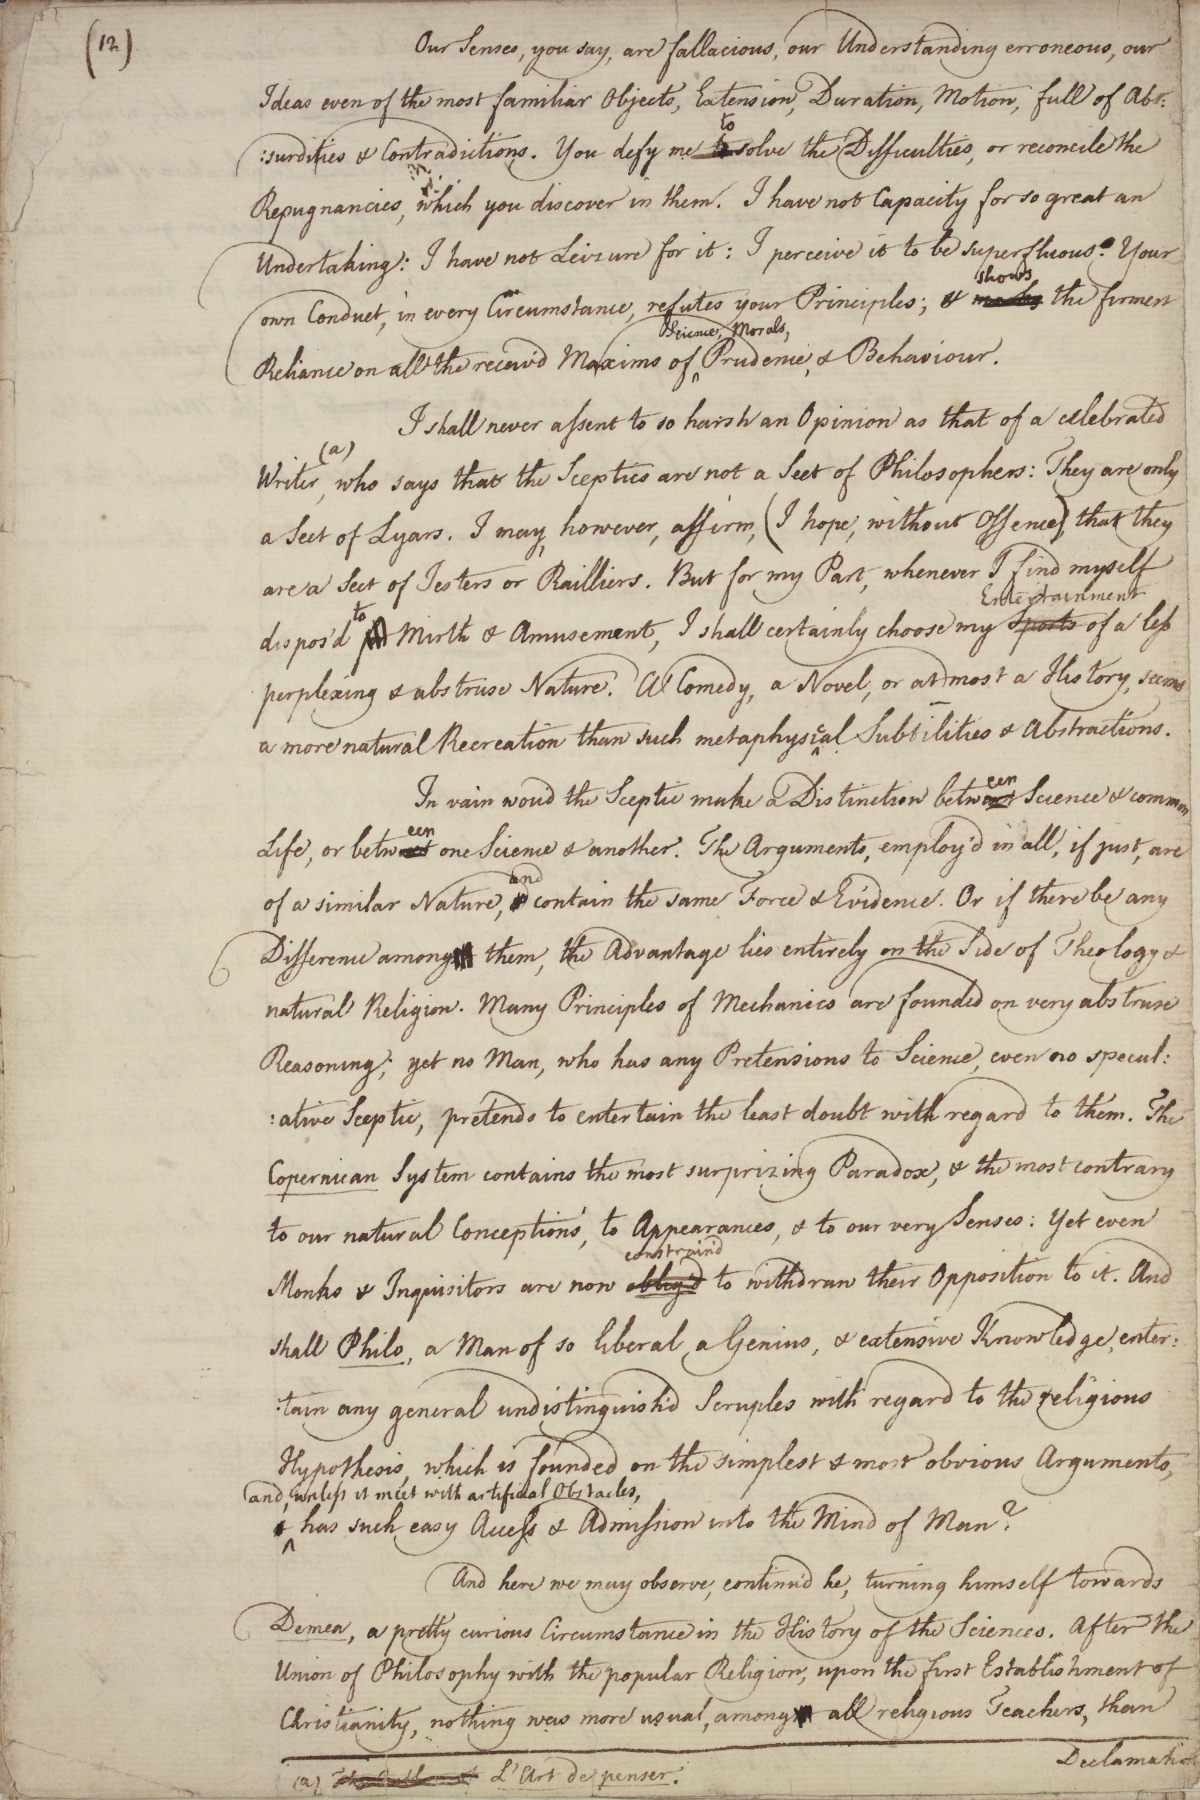 (12)
Our Senses, you say, are fallacious, our Understanding erroneous, our
Ideas even of the most familiar Objects, Extension, Duration, Motion, full of Abs:
:surdities & Contradictions. You defy me to solve the Difficulties, or reconcile the
Repugnancies, which you discover in them. I have not Capacity for so great an
Undertaking: I have not Leizure for it: I perceive it to be superfluous. Your
shows
own Conduct, in every Circumstance, refutes your Principles; & the firmest
Science, Morals,
Reliance on all the receiv'd Maxims of Prudence, & Behaviour.
I shall never assent to so harsh an Opinion as that of a celebrated
(a)
Writer, who says that the Sceptics are not a Sect of Philosophers: They are only
a Sect of Lyars. I may, however, affirm, (I hope, without Offence) that they
are a Sect of Jesters or Railliers. But for my Part, whenever I find myself
to Entertainment
dispos'd Mirth & Amusement, I shall certainly choose my sports of a less
perplexing & abstruse Nature. A Comedy, a Novel, or at most a History, seems
a more natural Recreation than such metaphysical Subtilities & Abstractions.
In vain woud the Sceptic make a Distinction between Science & common
Life, or between one Science & another. The Arguments, employ'd in all, if just, are
and
of a similar Nature, contain the same Force & Evidence. Or if there be any
Difference among them, the Advantage lies entirely on the Side of Theology &
natural Religion. Many Principles of Mechanics are founded on very abstruse
Reasoning; yet no Man, who has any Pretensions to Science, even no specul:
:ative Sceptic, pretends to entertain the least doubt with regard to them. The
Copernican System contains the most surprizing Paradox, & the most contrary
to our natural Conceptions, to Appearances, & to our very Senses: Yet even
constraind
Monks & Inquisitors are now oblig'd to withdraw their Opposition to it. And
shall Philo, a Man of so liberal a Genius, & extensive Knowledge, enter:
:tain any general undistinguish'd Scruples with regard to the religious
Hypothesis, which is founded on the simplest & most obvious Arguments,
and, unless it meet with artificial Obstacles,
& has such easy Access & Admission into the Mind of Man?
And here we may observe, continu'd he, turning himself towards
Demea, a pretty curious Circumstance in the History of the Sciences. After the
Union of Philosophy with the popular Religion, upon the first Establishment of
Christianity, nothing was more usual, among all religious Teachers, than
Declamatio
(a) L'Art de penser.